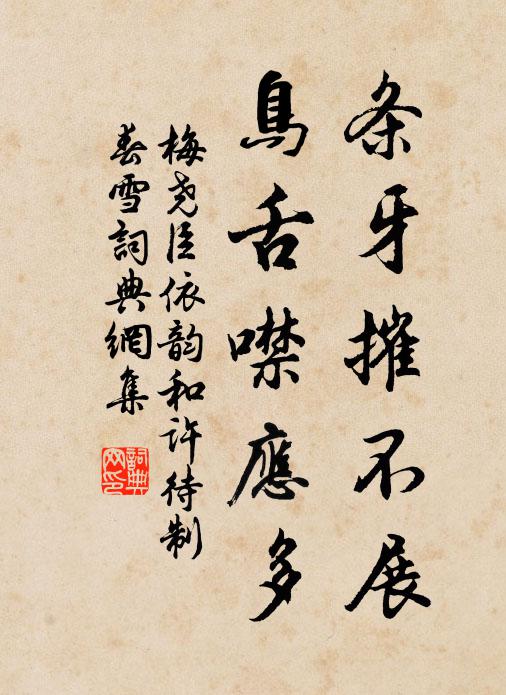 条牙摧不展
鳥舌噤應多
梅尧臣依韵和许待制
春雪詞典網集
詞典网印